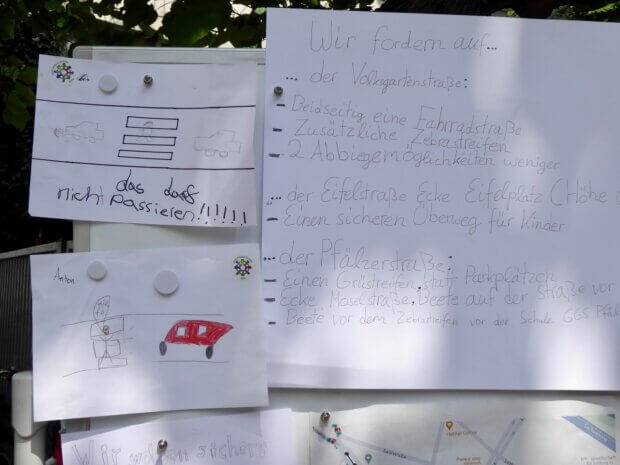 bis
das darf
nicht passieren!!!!!!
Anton
Wir fordern auf...
... der Volksgartenstraße:
- Beidseitig eine Fahrradstraße
- Zusätzliche Zebrastreifen
- 2 Abbiegemöglichkeiten weniger
... der Eifelstraße Ecke Eifelplatz (Höhe
- Einen sicheren Überweg für Kinder
... der Pfälzerstraße:
- Einen Grüstreifen statt Parkplätzen
- Ecke Moselstraße, Beete auf der Straße vor
- Beete vor dem Zebrastreifen vor der Schule GGS Pfäl
Wir wollen sichere